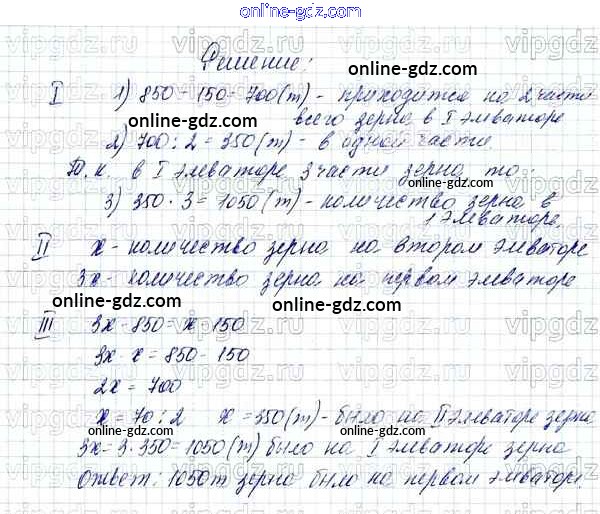 online-gdz.com
Решение:
online-gdz.com
I 1) 850-150=700(т) - приходится на 2 части
online-gdz.com
всего зерна в I элеваторе
2) 700:2=350(т) - в одной части.
Т.к. в I элеваторе 3 части зерна то:
online-gdz.com
3) 350·3=1050(т) - количество зерна в
I элеваторе.
II х - количество зерна на втором элеваторе
3х - количество зерна на первом элеваторе
online-gdz.com
online-gdz.com
III 3х-850=х-150
3х-х=850-150
2х=700
online-gdz.com
х=70:2 х=350(т) - было на II элеваторе зерна
3х=3·350=1050(т) было на I элеваторе зерна
Ответ: 1050т зерна было на первом элеваторе.
online-gdz.com